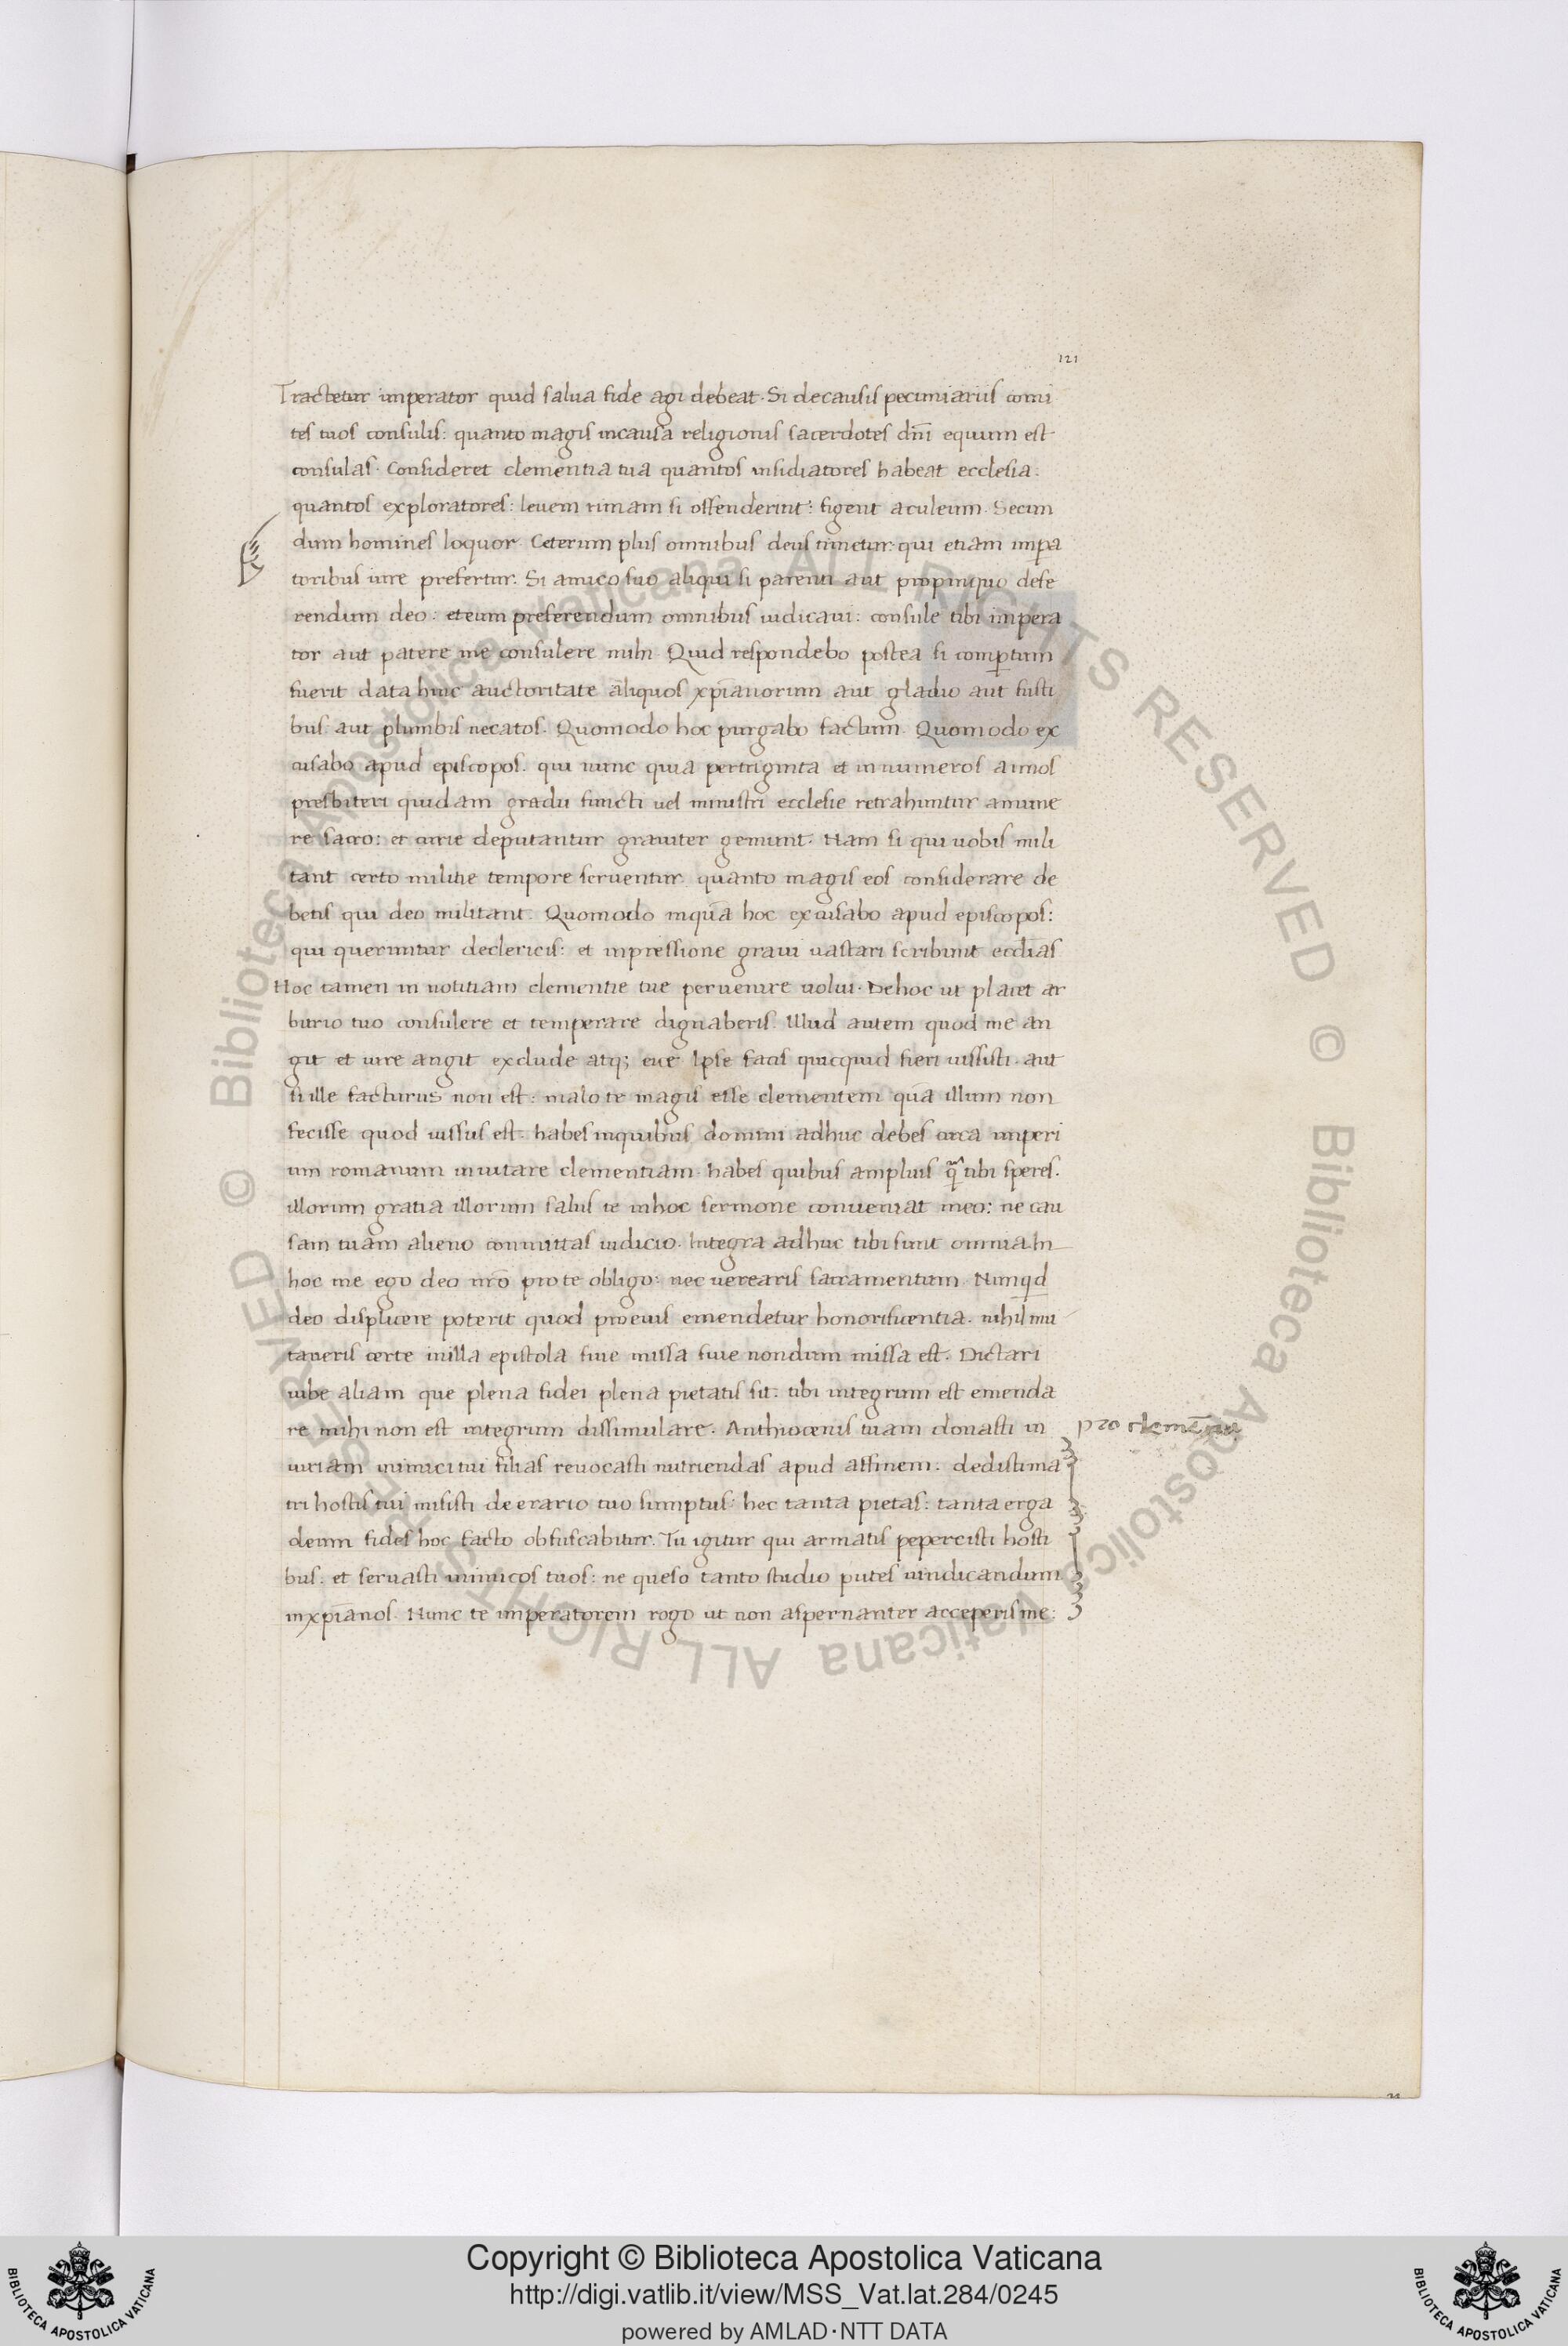 121
Tractetur imperator quid salua fide agi debeat. Si de causis pecuniariis comi
tes tuos consulis: quanto magis in causa religionis sacerdotes dñi equum est
consulas. Consideret clementia tua quantos insidiatores habeat ecclesia:
quantos exploratores: leuem rimam si offenderint: figent aculeum. Secun
dum homines loquor. Ceterum plus omnibus deus timetur: qui etiam impa
toribus iure prefertur. Si amico suo aliqui si parenti aut propinquo defe
rendum deo: et eum preferendum omnibus iudicaui: consule tibi impera
tor aut patere me consulere mihi. Quid respondebo postea si compertum
fuerit data hinc auctoritate aliquos xp̄ianorum aut gladio aut fusti
bus aut plumbis necatos. Quomodo hoc purgabo factum. Quomodo ex
cusabo apud episcopos. qui nunc quia per triginta et innumeros annos
presbiteri quidam gradu functi uel ministri ecclesie retrahuntur a mune
re sacro: et curie deputantur grauiter gemunt. Nam si qui uobis mili
tant certo militie tempore seruentur quanto magis eos considerare de
betis qui deo militant. Quomodo inquā hoc excusabo apud episcopos:
qui queruntur de clericis: et inpressione graui uastari scribunt ecclīas
Hoc tamen in notitiam clementie tue peruenire uolui. De hoc ut placet ar
bitrio tuo consulere et temperare dignaberis. Illud autem quod me an
git et iure angit exclude atq; eice. Ipse facis quicquid fieri iussisti. aut
si ille facturus non est: malo te magis esse clementem quā illum non
fecisse quod iussus est. habes in quibus domini adhuc debes circa imperi
um romanum inuitare clementiam. habes quibus amplius q̃ tibi speres.
illorum gratia illorum salus te in hoc sermone conueniat meo: ne cau
sam tuam alieno committas iudicio. Integra adhuc tibi sunt omnia. In
hoc me ego deo nr̄o pro te obligo: nec uerearis sacramentum. Nunqd
deo displicere poterit quod pro eius emendetur honorificentia. nihil mu
taueris certe in illa epistola siue missa siue nondum missa est. Dictari
iube aliam que plena fidei plena pietatis sit: tibi integrum est emenda
re mihi non est integrum dissimulare. Anthiocenis tuam donasti in
iuriam inimici tui filias reuocasti nutriendas apud affinem: dedisti ma
tri hostis tui misisti de erario tuo sumptus: hec tanta pietas: tanta erga
deum fides hoc facto obfuscabitur. Tu igitur qui armatis pepercisti hosti
bus: et seruasti inimicos tuos: ne queso tanto studio putes uindicandum
in xp̄ianos. Nunc te imperatorem rogo ut non aspernanter acceperis me:
pro
© Biblioteca Apostolica Vaticana ALL RIGHTS RESERVED
© Biblioteca Apostolica Vaticana ALL RIGHTS RESERVED
Copyright © Biblioteca Apostolica Vaticana
http://digi.vatlib.it/view/MSS_Vat.lat.284/0245
powered by AMLAD·NTT DATA
BIBLIOTECA APOSTOLICA VATICANA
BIBLIOTECA APOSTOLICA VATICANA